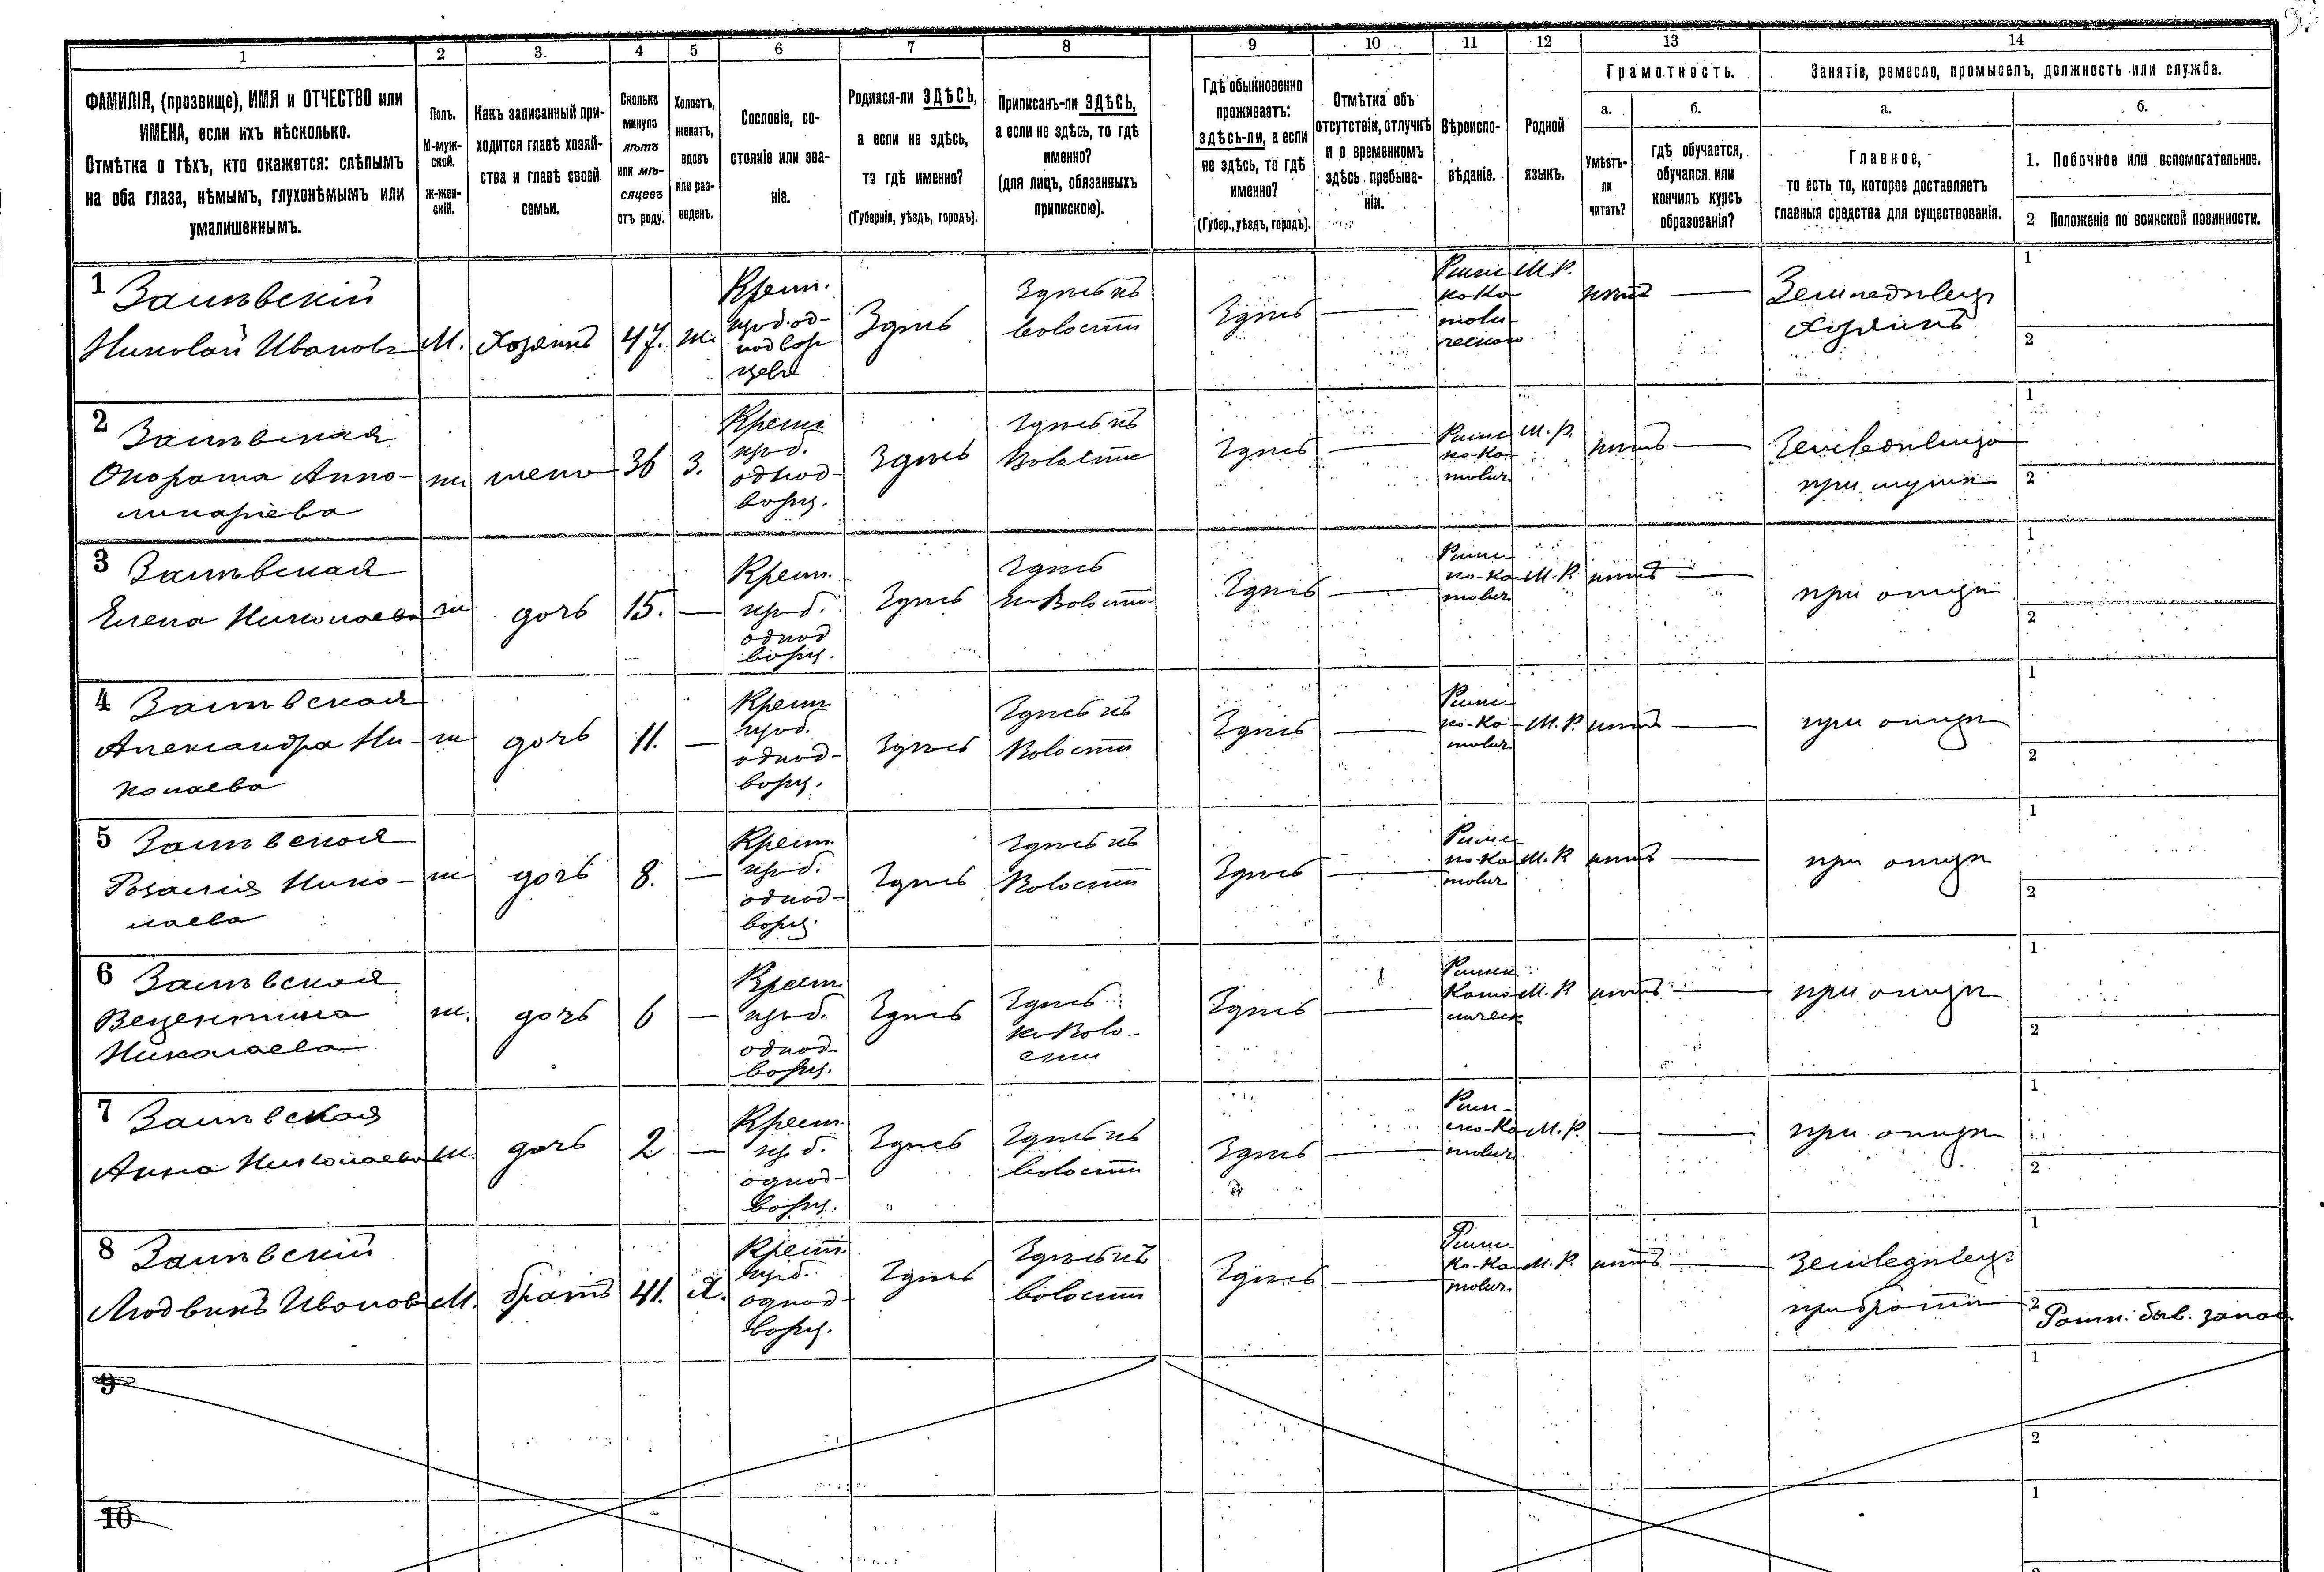 1 2 3. 4 5 6 7 8 9 10 11 12 13 14
ФАМИЛІЯ, (прозвище), ИМЯ и ОТЧЕСТВО или
ИМЕНА, если ихъ нѣсколько.
Отмѣтка о тѣхъ, кто окажется: слѣпымъ
на оба глаза, нѣмымъ, глухонѣмымъ или
умалишеннымъ.
Полъ.
М-муж-
ской.
ж-жен-
скій.
Какъ записанный при-
ходится главѣ хозяй-
ства и главѣ своей
семьи.
Сколько
минуло
лѣтъ
или мѣ-
сяцевъ
отъ роду.
Холостъ,
женатъ,
вдовъ
или раз-
веденъ.
Сословіе, со-
стояніе или зва-
ніе.
Родился-ли ЗДѢСЬ,
а если не здѣсь,
то гдѣ именно?
(Губернія, уѣздъ, городъ).
Приписанъ-ли ЗДѢСЬ,
а если не здѣсь, то гдѣ
именно?
(для лицъ, обязанныхъ
припискою).
Гдѣ обыкновенно
проживаетъ:
здѣсь-ли, а если
не здѣсь, то гдѣ
именно?
(Губер., уѣздъ, городъ).
Отмѣтка объ
отсутствіи, отлучкѣ
и о временномъ
здѣсь пребыва-
ніи.
Вѣроиспо-
вѣданіе.
Родной
языкъ.
Грамотность.
а.
Умѣетъ-
ли
читать?
б.
гдѣ обучается,
обучался или
кончилъ курсъ
образованія?
Занятіе, ремесло, промыселъ, должность или служба.
а.
Главное,
то есть то, которое доставляетъ
главныя средства для существованія.
б.
1. Побочное или вспомогательное.
2 Положеніе по воинской повинности.
1
Николай Иванов
М. Хозяинъ 47. ж.
Крест.
Здѣсь
Здѣсь къ
волости
Здѣсь —
Римс
ко-Ка
толи-
ческаго
М. Р.
нѣтъ —
Земледѣлецъ
хозяинъ
1
2
2
ж жена 36 З.
Крест.
однод-
ворц.
Здѣсь
Здѣсь къ
Волости
Здѣсь —
Римс
ко-Ка
толич.
М. р.
нѣтъ —
при мужѣ
1
2
3
Елена Николаева
ж дочь 15. —
Крест.
однод
ворц.
Здѣсь
Здѣсь
къ Волости
Здѣсь —
Римс-
ко-Ка
толич.
М. Р
нѣтъ —
при отцѣ
1
2
4
Александра Ни-
колаева
ж дочь 11. —
Крест.
однод-
ворц.
Здѣсь
Здѣсь къ
Волости
Здѣсь —
Римс-
ко-Ка
толич.
М. Р.
нѣтъ —
при отцѣ
1
2
5
Розалія Нико-
лаева
ж дочь 8. —
Крест.
однод-
ворц.
Здѣсь
Здѣсь къ
Волости
Здѣсь —
Римс-
ко-Ка
толич.
М. Р
нѣтъ —
при отцѣ
1
2
6
Николаева
ж. дочь 6 —
Крест.
однод-
ворц.
Здѣсь
Здѣсь
къ Воло-
сти
Здѣсь —
М. Р
нѣтъ —
при отцѣ
1
2
7
Анна Николаева
ж. дочь 2 —
Крест.
однод-
ворц.
Здѣсь
Здѣсь къ
волости
Здѣсь —
Рим-
ско-Ка
толич.
М. Р.
— —
при отцѣ
1
2
8
Людвикъ Иванов
М. братъ 41. Х.
Крест.
однод-
ворц.
Здѣсь
Здѣсь къ
волости
Здѣсь —
Римс-
ко-Ка
толич.
М. Р.
нѣтъ —
Земледѣлецъ
при братѣ
1
2 Ратн. быв. запас.
9
1
2
10
1